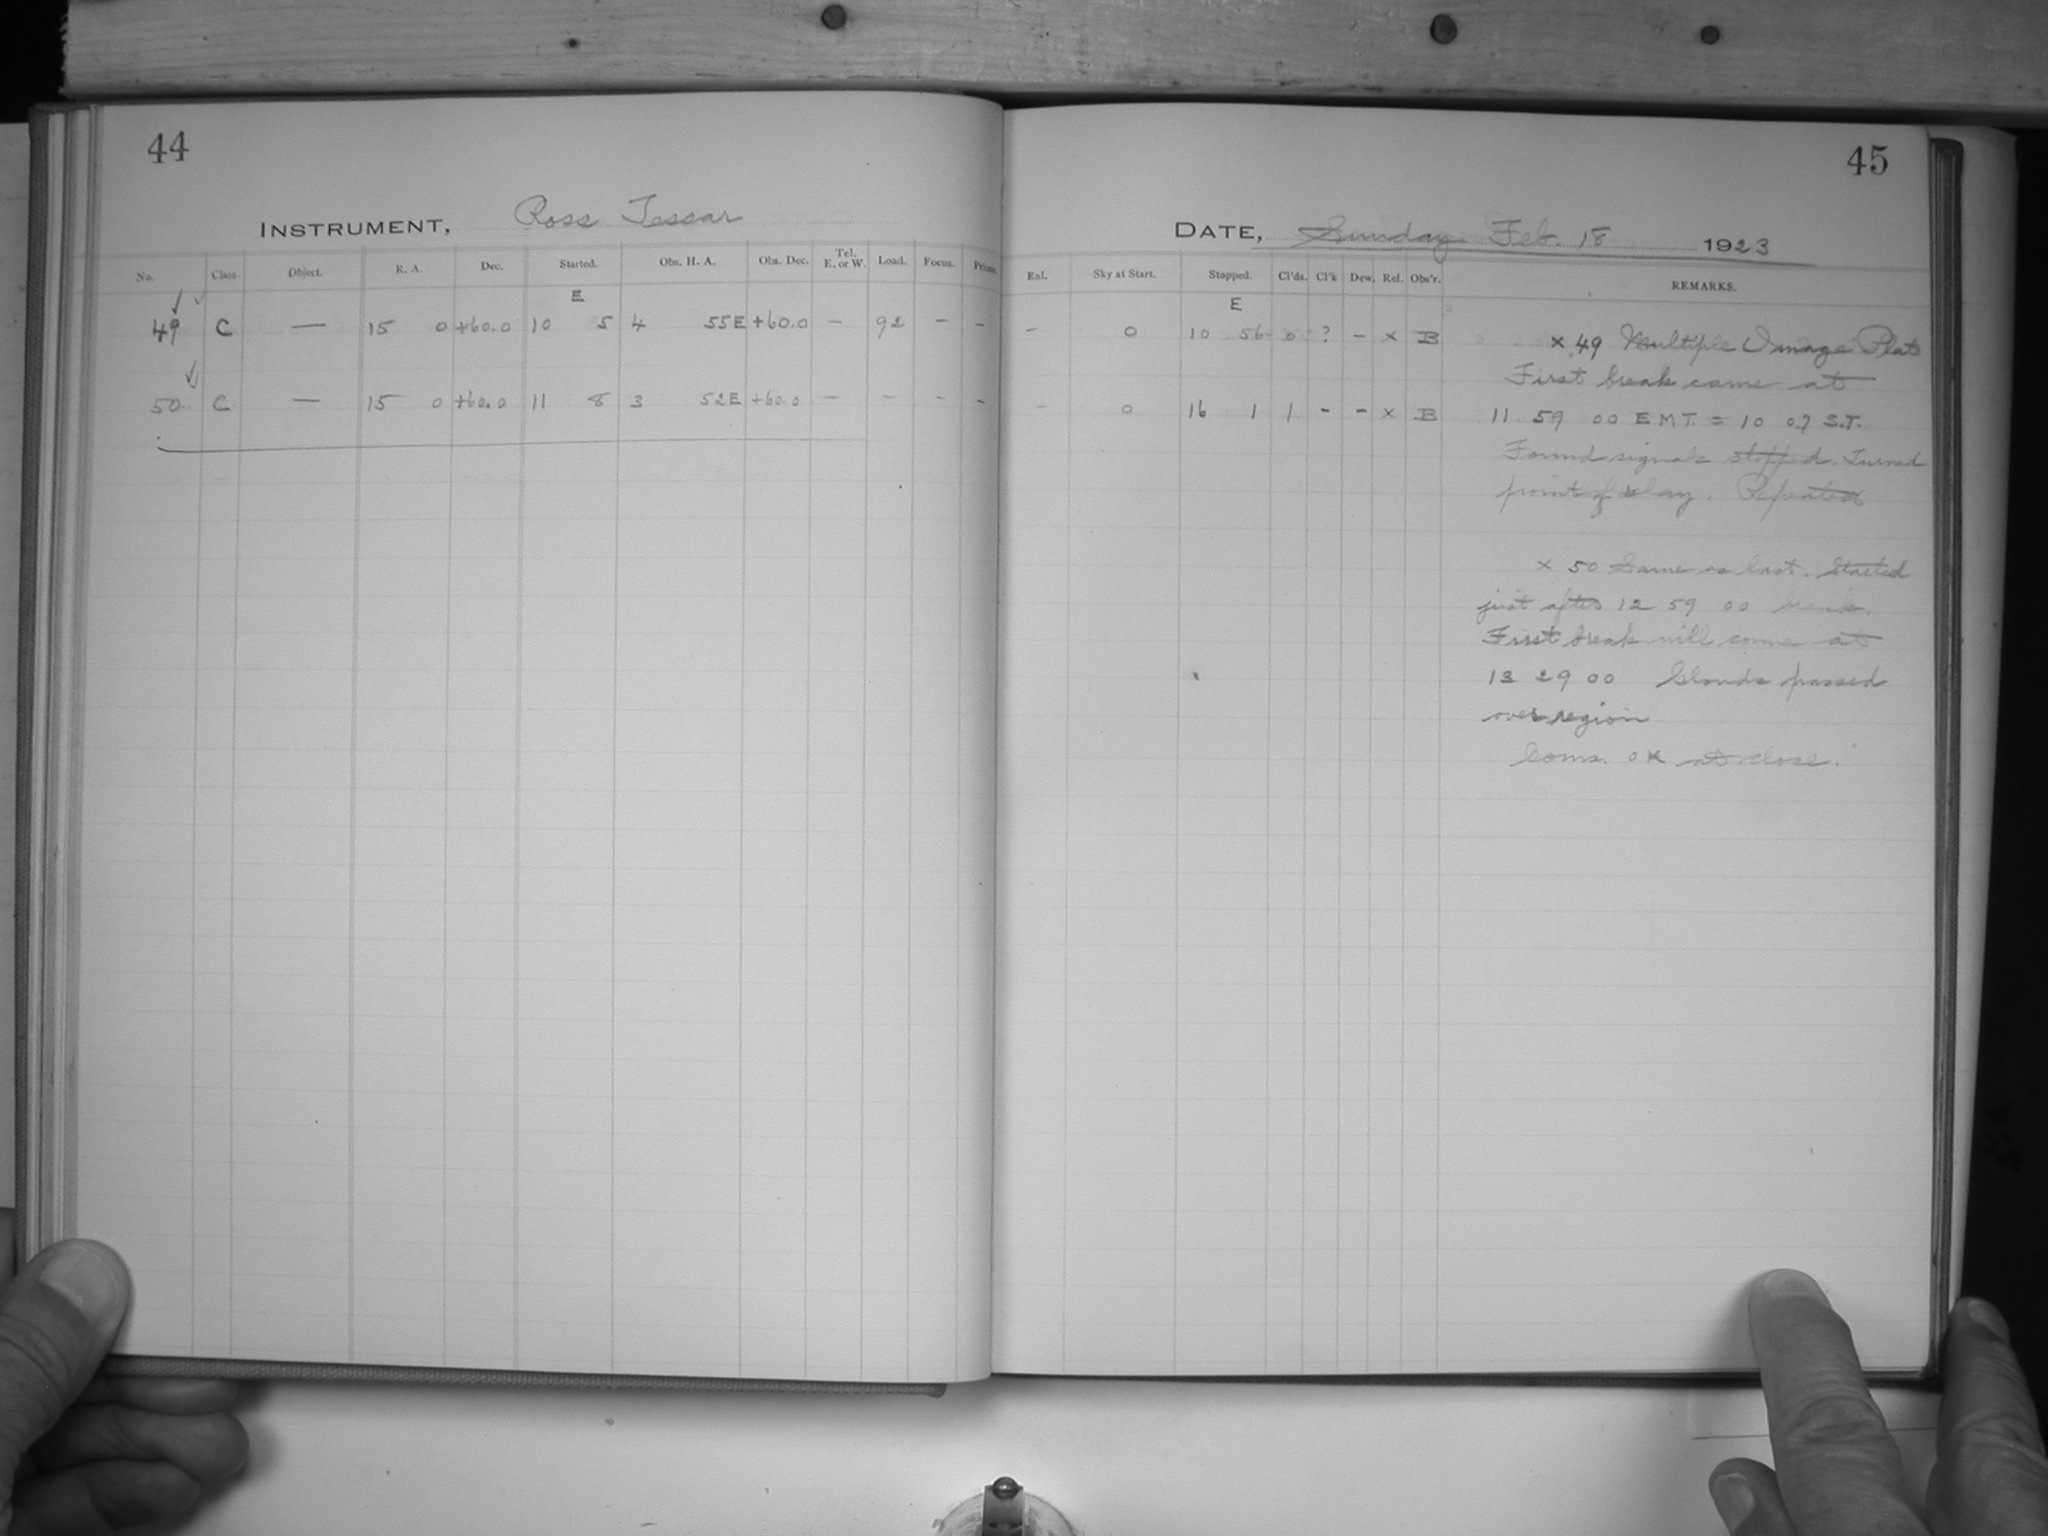 44
INSTRUMENT, Ross Tessar
No. Class Object. R. A. Dec. Started. Obs. H. A. Obs. Dec. Tel. E. or W. Load. Focus.
E
49 C — 15 0 +60.0 10 5 4 55E +60.0 — 92 — —
50 C — 15 0 +60.0 11 8 3 52E +60.0 — — — —
45
DATE, Sunday Feb. 18 1923
Enl. Sky at Start. Stopped. Cl'ds. Cl'k Dew. Ref. Obs'r. REMARKS.
E
— 0 10 56 0 ? — x B
— 0 16 1 1 — — x B
x 49 Multiple Image Plate
First break came at
11 59 00 E.M.T. = 10 07 S.T.
Found signals stopped. Turned
points of relay. Repeated
x 50 Same as last. Started
just after 12 59 00 break.
First break will come at
13 29 00 Clouds passed
over region
Coms. OK at close.